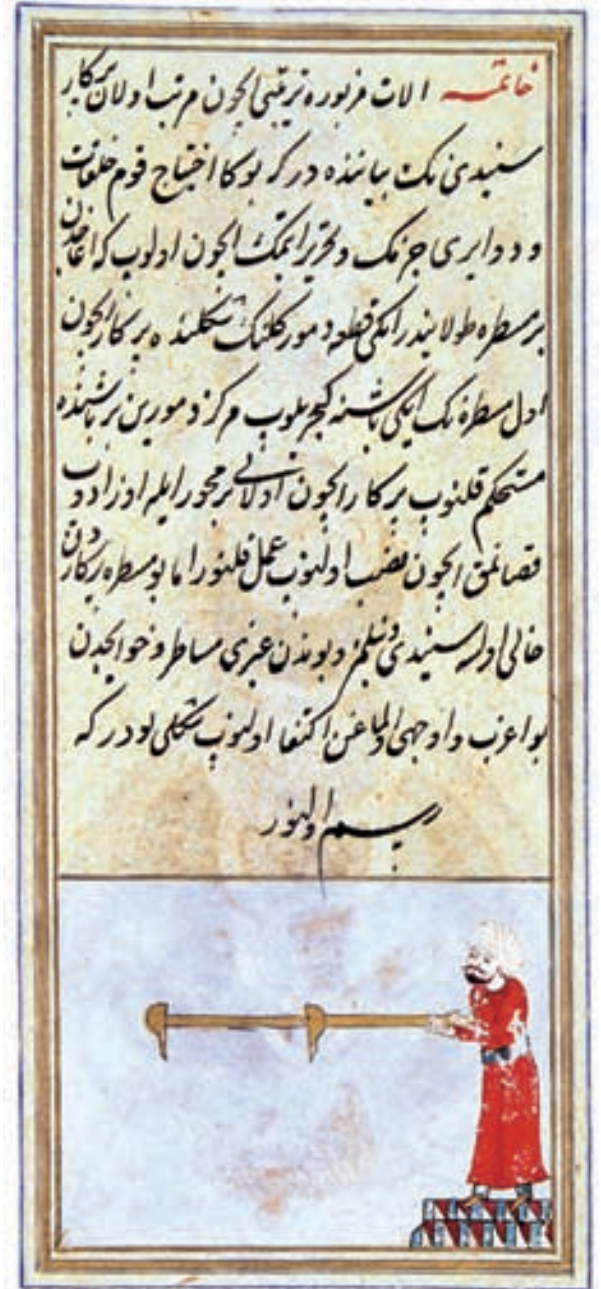 خاتمه الات مزبوره ترتیبی ایچون مرتب اولان پرکار
سنیدی نك بیاننده در که بوکا احتیاج قوم حلقات
و دوایری چزمك و تحریر ایتمك ایچون اولوب که اغاجدن
بر مسطره طولانیدر ایکی قطعه دمور کلنك شکلنده پرکار ایچون
اول مسطره نك ایکی باشنه کچریلوب مرکز دمورین بر باشنده
مستحکم قلنوب پرکار ایچون اولانی بر محور ایله اوزادوب
قصالتمق ایچون نصب اولنوب عمل قلنور اما بو مسطره پرکاردن
خالی اولسه سنیدی دینلمز و بوندن غیری مساطر و خوابجدن
بو اغرب و اوجهی اولماغن اکتفا اولنوب شکلی بودر که
رسم اولنور